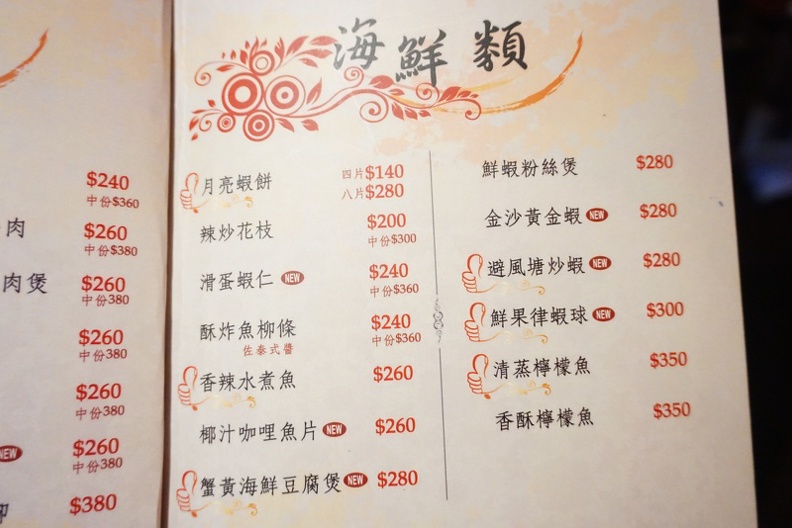 海鮮類
$240
中份$360
肉 $260
中份$380
肉煲 $260
中份380
$260
中份380
$260
中份380
NEW $260
中份380
$380
月亮蝦餅 四片$140
八片$280
辣炒花枝 $200
中份$300
滑蛋蝦仁 NEW $240
中份$360
酥炸魚柳條 $240
佐泰式醬 中份$360
香辣水煮魚 $260
椰汁咖哩魚片 NEW $260
蟹黃海鮮豆腐煲 NEW $280
鮮蝦粉絲煲 $280
金沙黃金蝦 NEW $280
避風塘炒蝦 NEW $280
鮮果律蝦球 NEW $300
清蒸檸檬魚 $350
香酥檸檬魚 $350